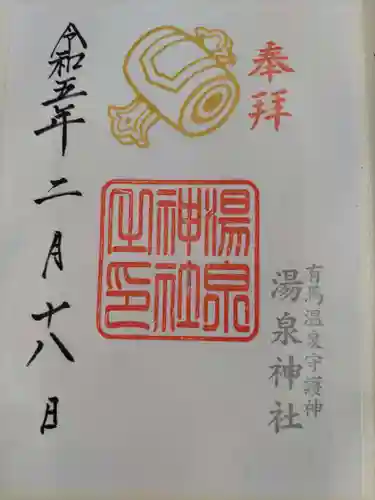 奉拝
有馬温泉守護神
湯泉神社
湯泉
神社
之印
令和五年二月十八日